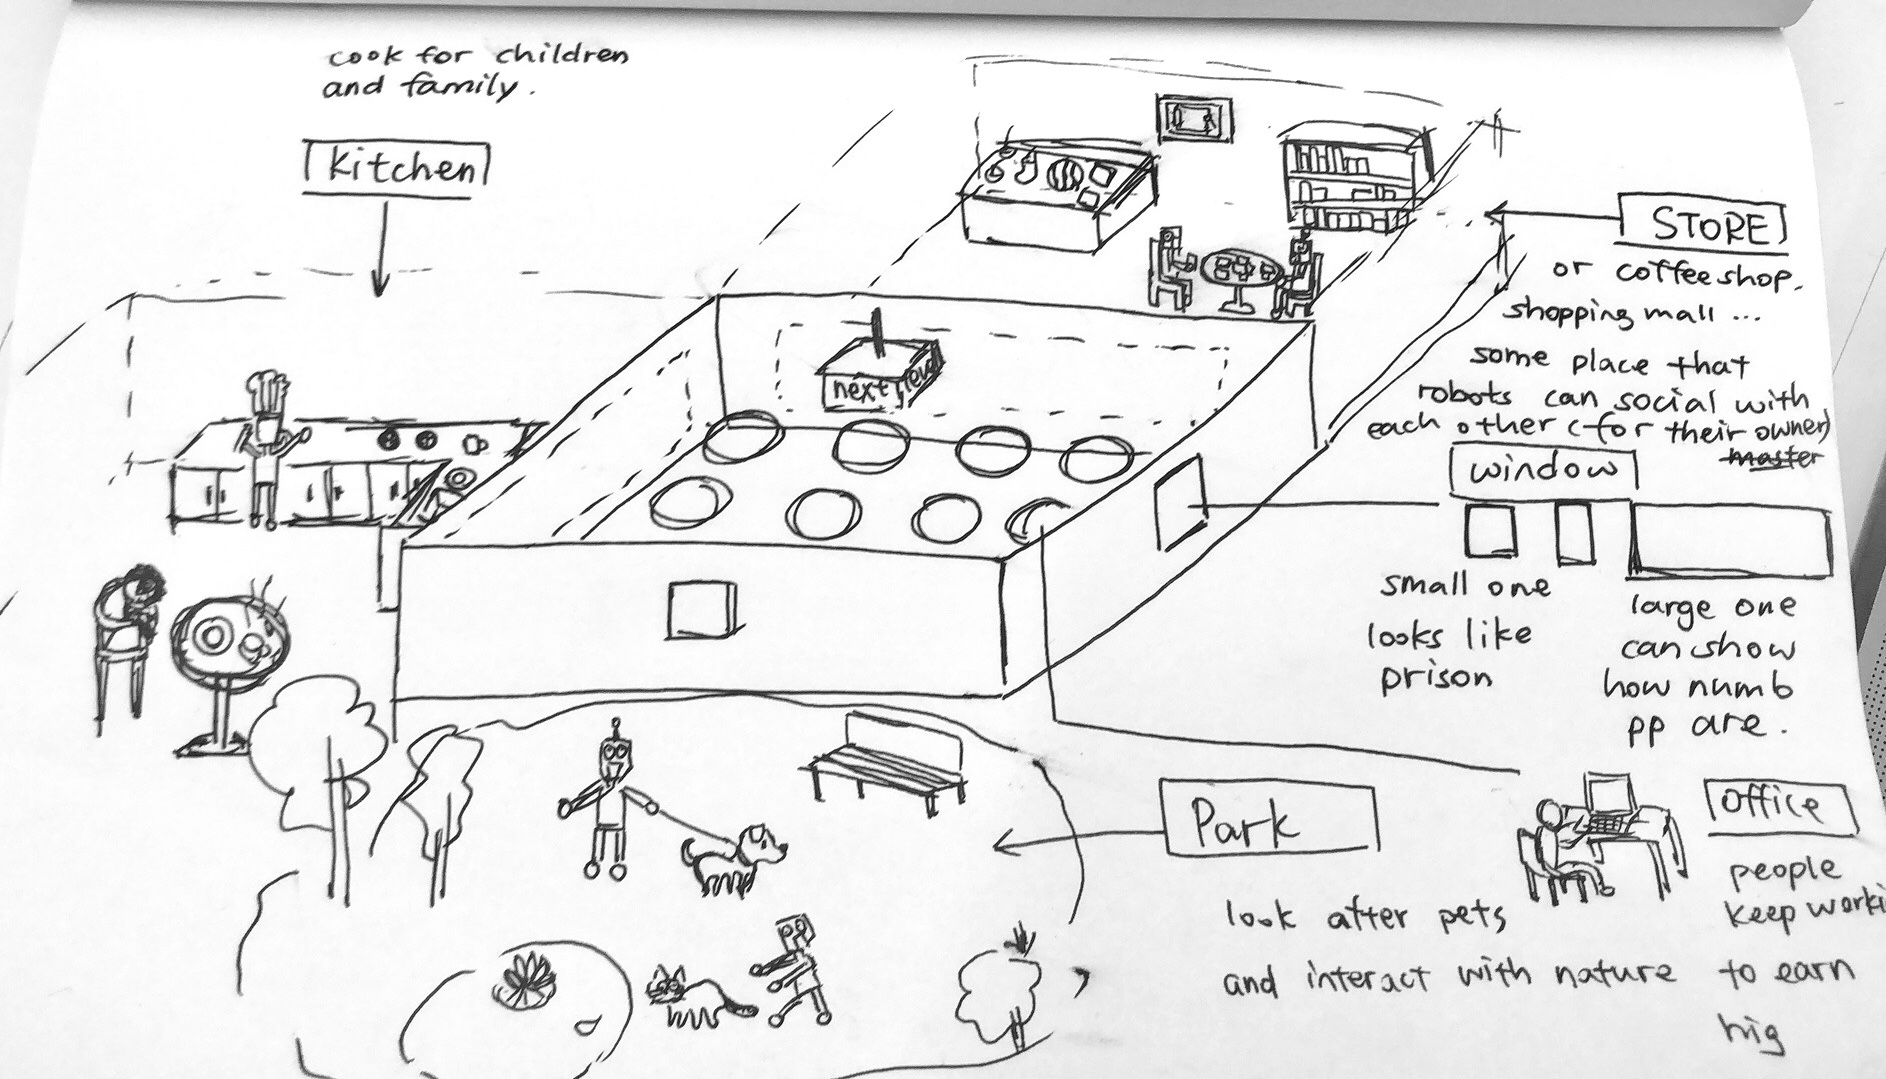 cook for children
and family.
Kitchen
STORE
or coffee shop.
shopping mall ...
some place that
robots can social with
each other (for their owner)
master
next level
window
small one
looks like
prison
large one
can show
how numb
pp are.
Park
look after pets
and interact with nature
office
people
keep worki
to earn